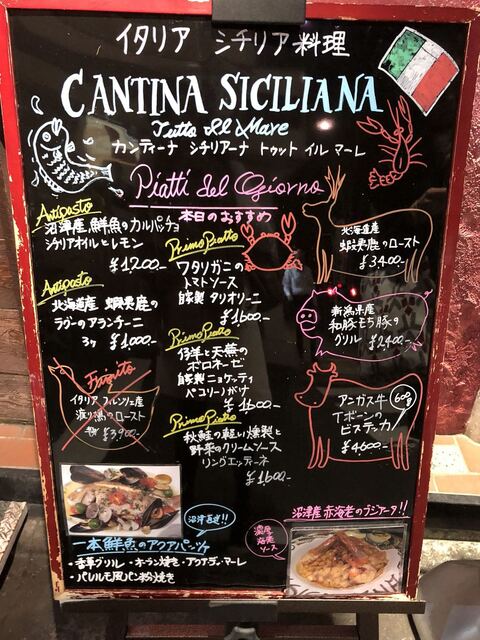 イタリア シチリア料理
CANTINA SICILIANA
Tutto Il Mare
カンティーナ シチリアーナ トゥット イル マーレ
Piatti del Giorno
本日のおすすめ
Antipasto
沼津産 鮮魚のカルパッチョ
シチリアオイルとレモン
¥1,200-
Antipasto
北海道産 蝦夷鹿の
ラグーのアランチーニ
3ヶ ¥1,000-
Finito
イタリア
渡り鴨のロースト
¥3,900-
Primo Piatto
ワタリガニの
トマトソース
自家製 タリオリーニ
¥1600-
Primo Piatto
仔羊と天蕪の
ボロネーゼ
自家製 ニョケッティ
ペコリーノがけ
¥1600-
Primo Piatto
秋鮭の軽い燻製と
野菜のクリームソース
リングエッティーネ
¥1600-
北海道産
蝦夷鹿のロースト
¥3,400-
新潟県産
和豚もち豚の
グリル
¥2,400-
アンガス牛 600g
Tボーンの
ビステッカ
¥4,600-
沼津直送!!
一本鮮魚のアクアパッツァ
・香草グリル・オーブン焼き・アクアディマーレ
・パレルモ風パン粉焼き
沼津産 赤海老のブジアータ!!
濃厚
海老
ソース